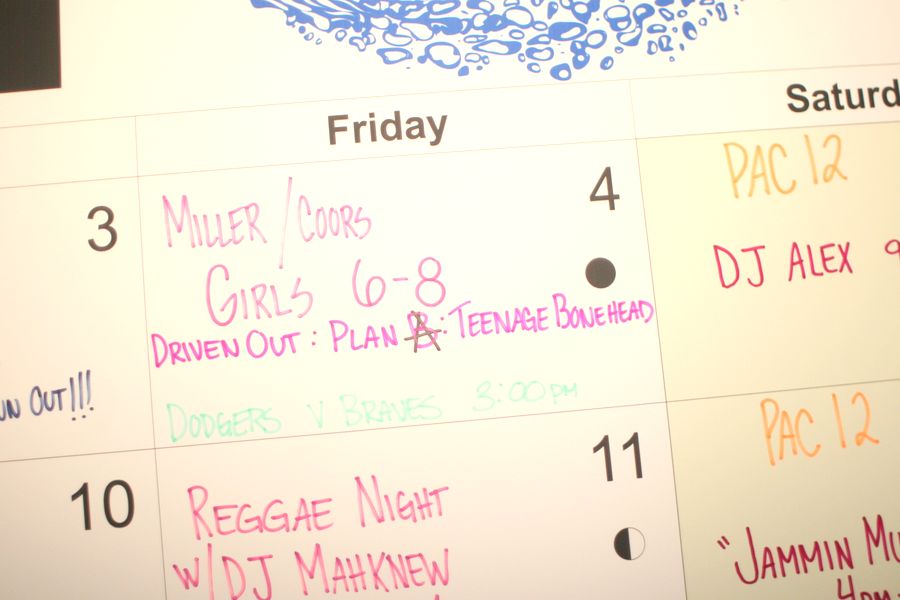 Friday
Saturd
3
UN OUT!!!
4
MILLER/COORS
GIRLS 6-8
DRIVEN OUT: PLAN A: TEENAGE BONEHEAD
DODGERS V BRAVES 3:00PM
PAC 12
DJ ALEX 9
10
11
REGGAE NIGHT
W/DJ MAHKNEW
PAC 12
"JAMMIN MU
4PM-